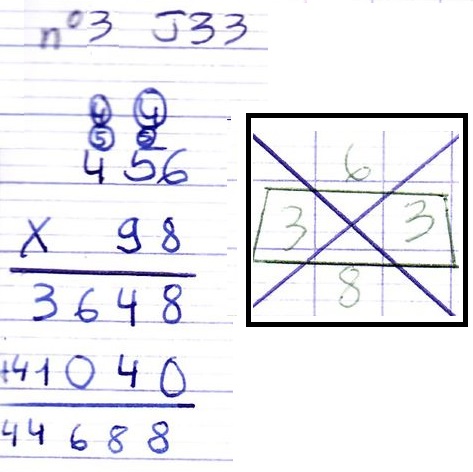 n°3 J33
4 4
5 5
456
X 98
3648
+41040
44688
6
3 3
8